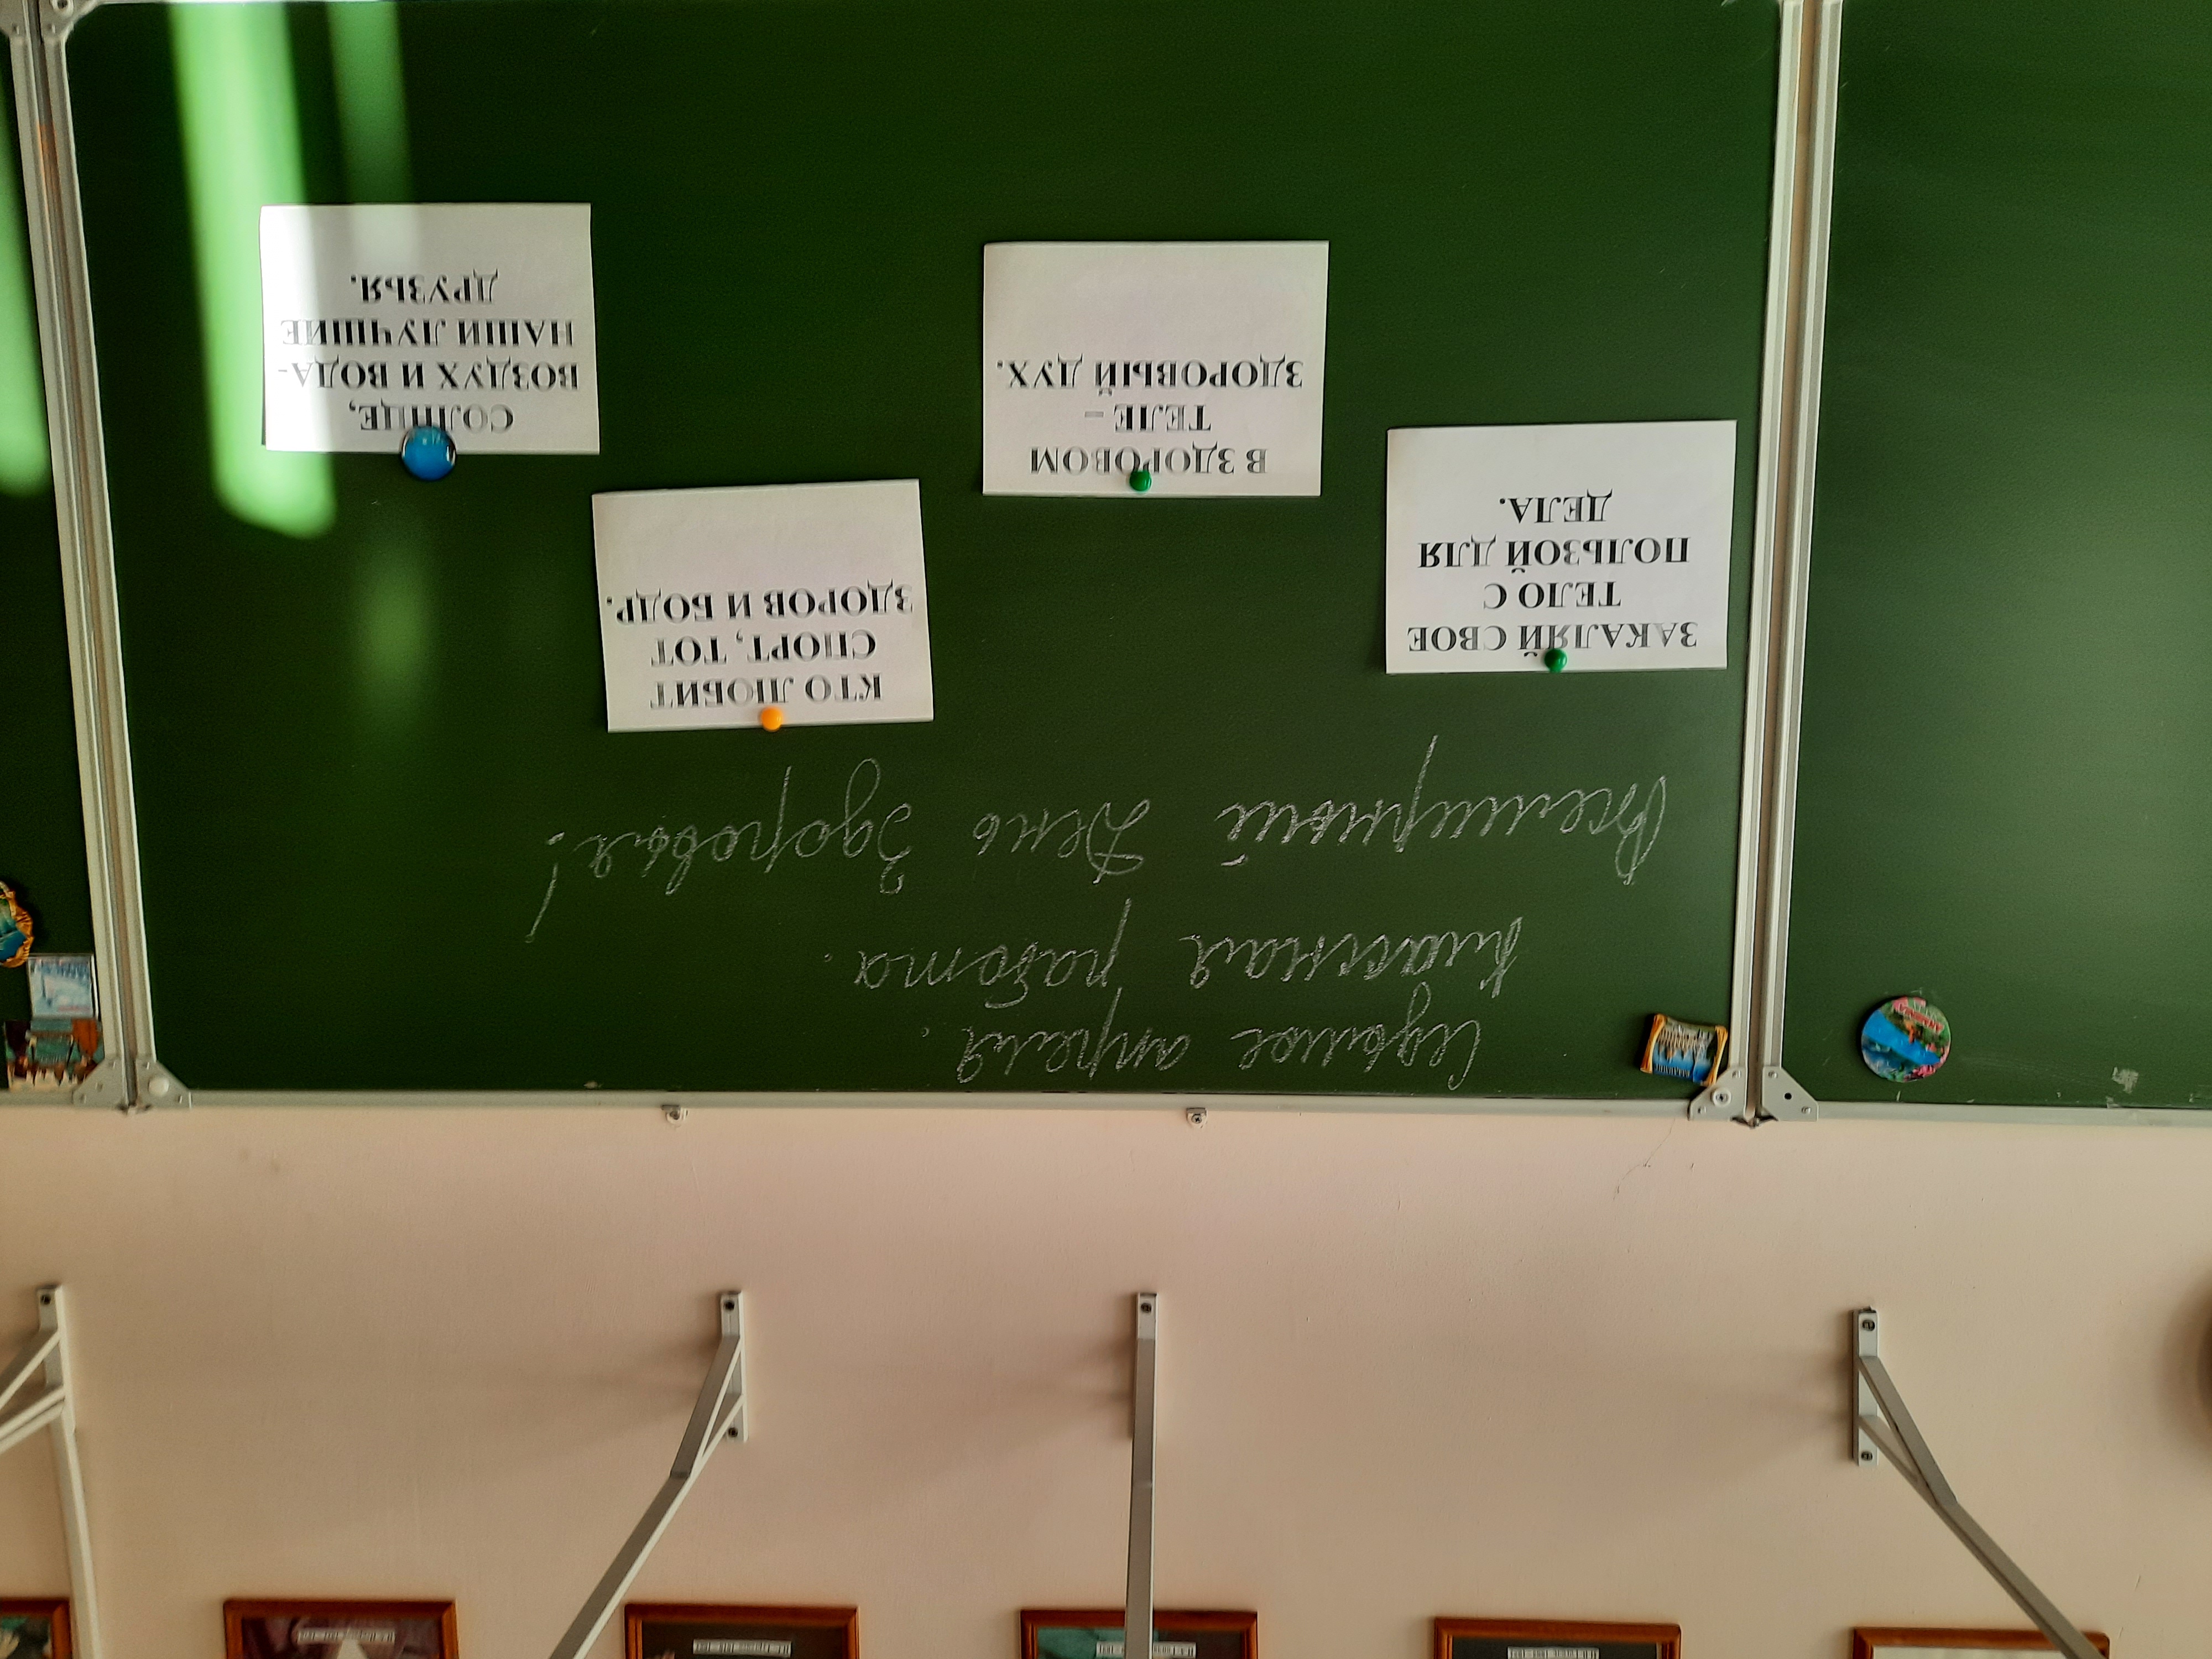 Седьмое апреля.
Классная работа.
Всемирный День Здоровья!
ЗАКАЛЯЙ СВОЕ
ТЕЛО С
ПОЛЬЗОЙ ДЛЯ
ДЕЛА.
В ЗДОРОВОМ
ТЕЛЕ –
ЗДОРОВЫЙ ДУХ.
КТО ЛЮБИТ
СПОРТ, ТОТ
ЗДОРОВ И БОДР.
СОЛНЦЕ,
ВОЗДУХ И ВОДА-
НАШИ ЛУЧШИЕ
ДРУЗЬЯ.